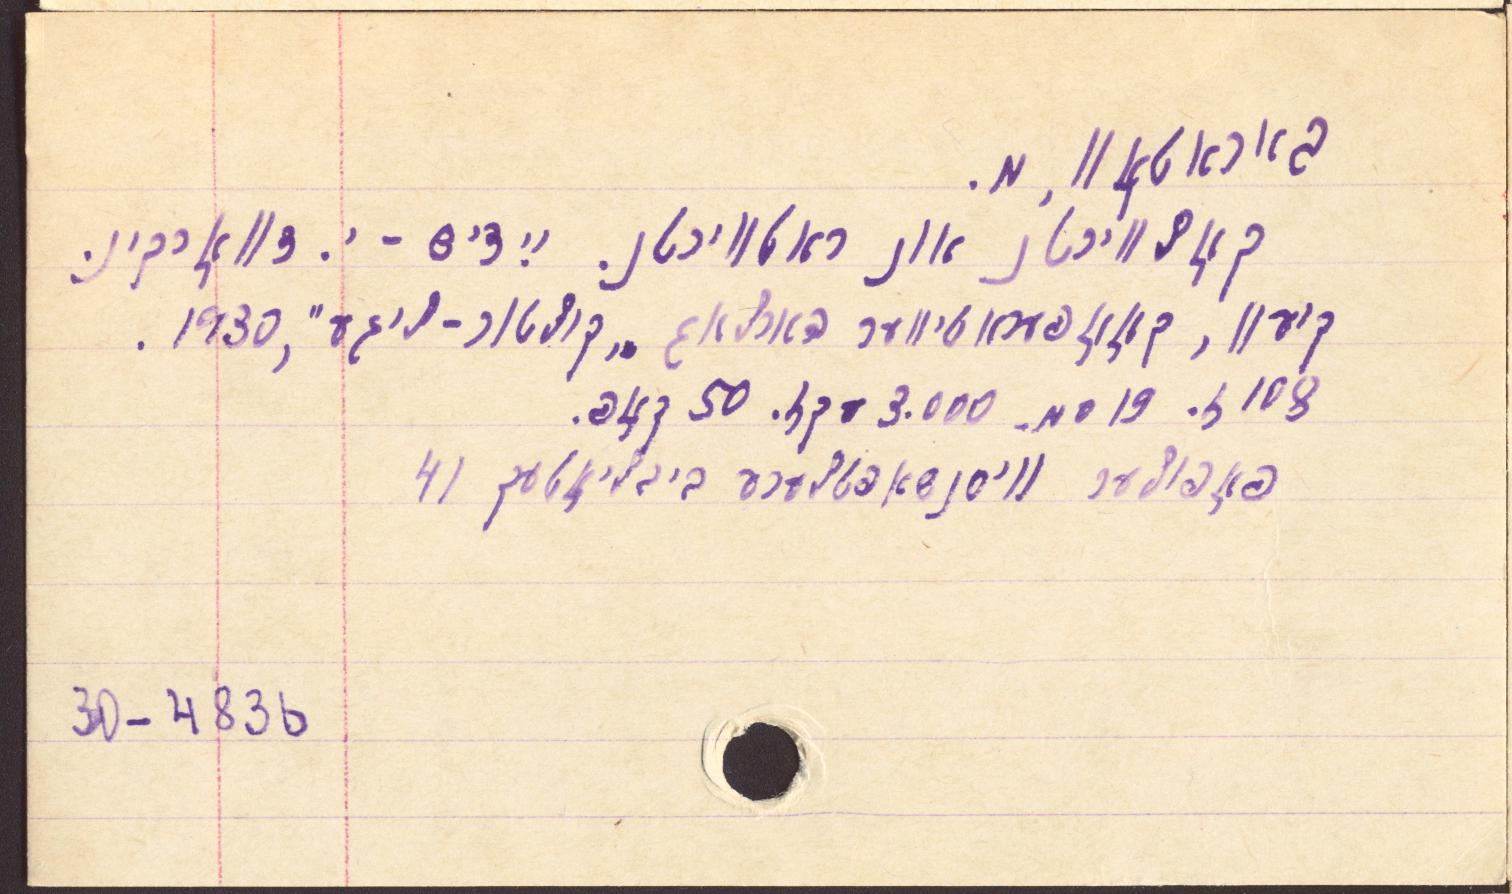 פאראטאָוו, מ.
קאָלווירטן און ראטווירטן. ייִדיש - י. דוואָרקין.
קיעוו, קאָאָפּעראטיווער פארלאג „קולטור-ליגע", 1930.
108 ז. 19 סמ. 3.000 עקז. 50 קאָפּ.
פּאָפּולער וויסנשאפטלעכע ביבליאָטעק 41
30-4836